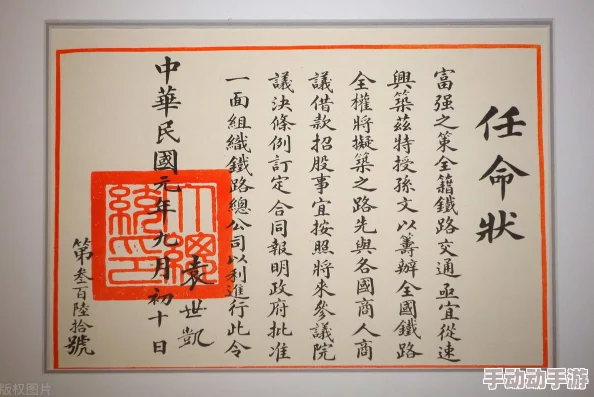 任命狀
富强之策全籍鐵路交通亟宜從速
興築茲特授孫文以籌辦全國鐵路
全權將擬築之路先與各國商人商
議借款招股事宜按照將來參議院
議決條例訂定合同報明政府批准
一面組織鐵路總公司以利進行此令
袁世凱
中華民國元年九月初十日
第叁百陸拾號
版权图片
手动动手游